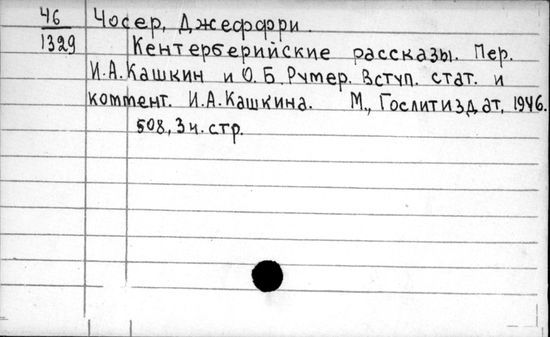 46
1329
Чосер, Джеффри.
Кентерберийские рассказы. Пер.
И.А.Кашкин и О.Б.Румер. Вступ. стат. и
коммент. И.А.Кашкина. М., Гослитиздат, 1946.
508, 3 н. стр.